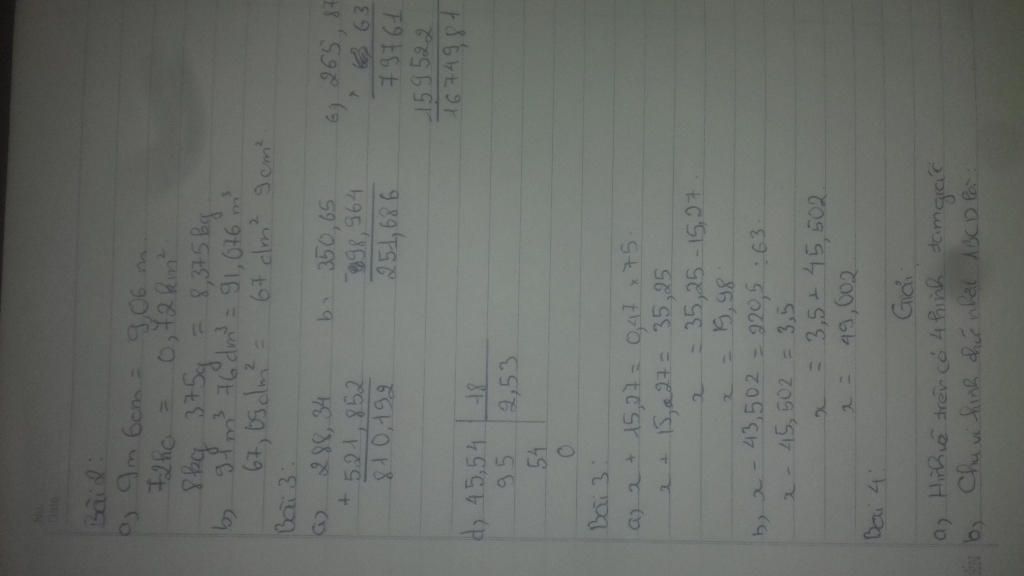 Bài 2:
a, 9m 6cm = 9,06 m
72ha = 0,72km²
8kg 375g = 8,375kg
b, 91m³ 76dm³ = 91,076m³
67,09dm² = 67dm² 9cm²
Bài 3:
a, 288,34
+ 521,852
810,192
b. 350,65
- 98,964
251,686
c, 265,87
, 63
79761
159522
16749,81
d, 45,54 18
95 2,53
54
0
Bài 3:
a, x + 15,27 = 0,47 × 75
x + 15,27 = 35,25
x = 35,25 - 15,27
x = 19,98
b, x - 43,502 = 220,5 : 63
x - 45,502 = 3,5
x = 3,5 + 45,502
x = 49,002
Bài 4:
Giải
a, Hình trên có 4 hình tam giác
b, Chu vi hình chữ nhật ABCD là: